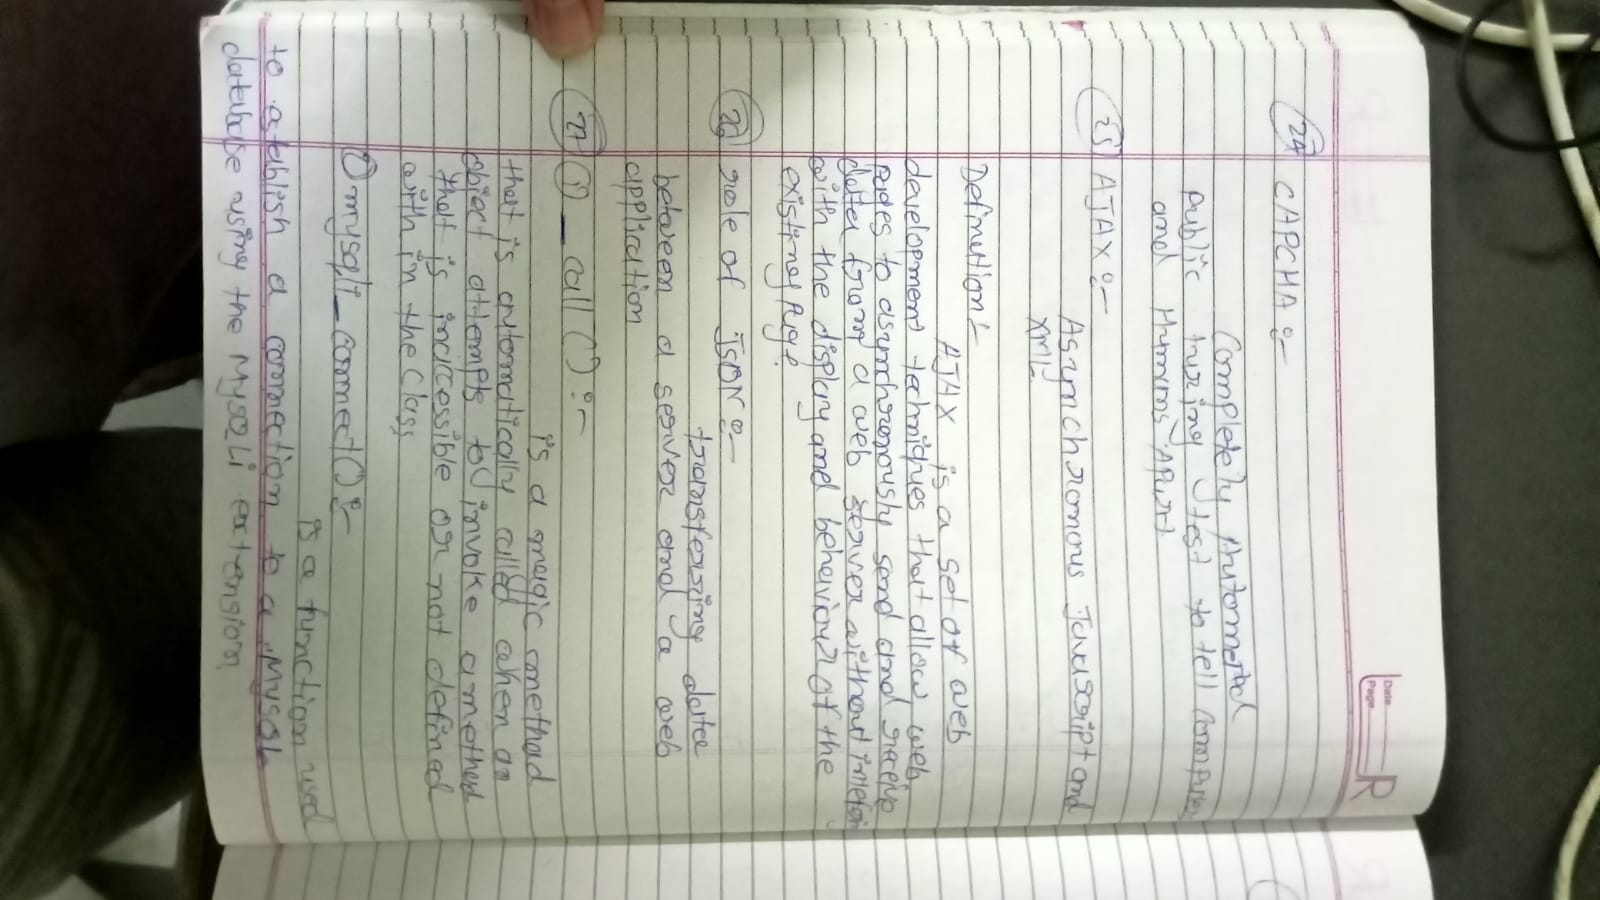 Date
Page
R
24 CAPCHA :-
Completely Automated
Public turing test to tell Computers
and Humans Apart
25 AJAX :-
Asynchronous Javascript and
XML
Definetion :-
AJAX is a set of web
development techniques that allow web
pages to asynchronously send and receive
data from a web server without
with the display and behaviour of the
existing page
26 role of JSON :-
transferring data
between a server and a web
application
27 ① _call() :-
is a magic method
that is automatically called when an
object attempts to invoke a method
that is inaccessible or not defined
with in the class
② mysqli_connect() :-
is a function used
to establish a connection to a MySQL
database using the MySQLi extension